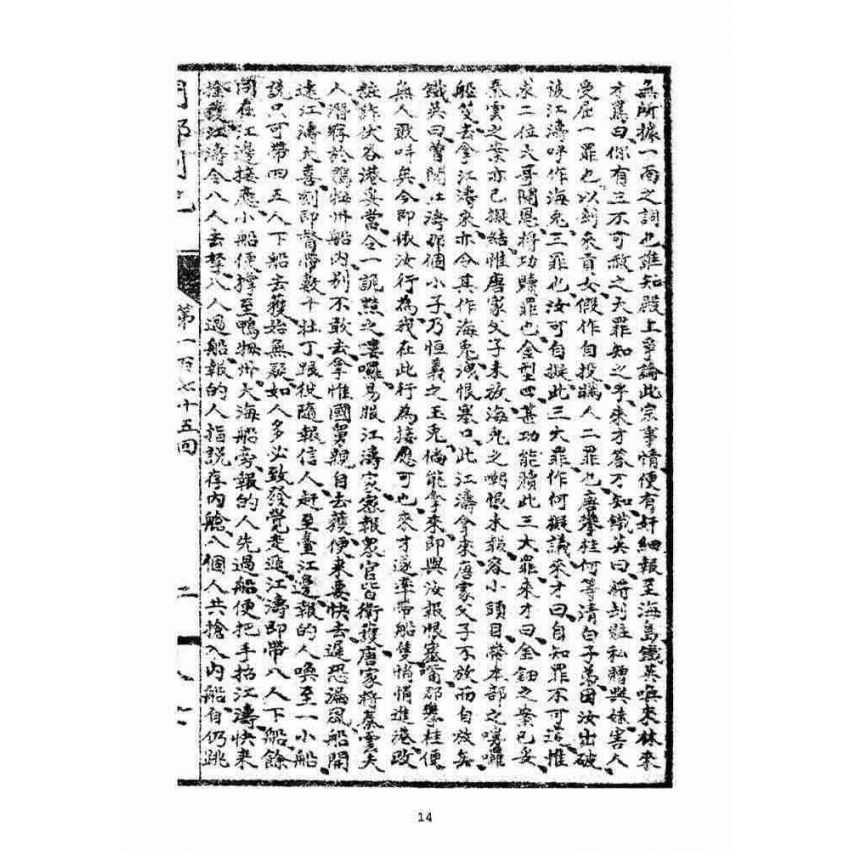 無所據一面之詞也誰知殿上爭論此宗事情便有奸細報至海島鐵英喚來林來
才罵曰你有三不可赦之大罪知之乎來才答不知鐵英曰將刮骷私贈與妹害人
受屈一罪也以劉來貢女假作自投瞞人二罪也唐攀桂何等清白子為因汝出破
被江濤呼作海兎三罪也汝可自擬此三大罪作何擬議來才曰自知罪不可逭惟
求二位大哥開恩將功贖罪也金型曰甚功能贖此三大罪來才曰金鈿之案已妥
秦雲之案亦已擬結惟唐家父子未放海兎之嘲恨未報容小頭目帶本部之嘍囉
船隻去拿江濤來亦令其作海兎洩恨塞口此江濤拿來唐家父子不放而自放矣
鐵英曰曾聞江濤那個小子乃恒義之玉兎倘能拿來即與汝報恨塞嘴郡攀桂便
無人敢呌矣今即依汝行為我在此行為接應可也來才遂率帶船隻悄悄進港改
粧詐伏各港妥當令一詭黠之嘍囉易服江濤家密報眾官皆銜獲唐家將秦雲夫
人潛存於鴨姆洲船內別不敢去拿惟國舅親自去獲便來要快去遲恐漏風船開
遠江濤大喜刻即督帶數十壯丁跟役隨報信人趕至臺江邊報的人喚至一小船
說只可帶四五人下船去獲始無疑如人多必致發覺走逃江濤即帶八人下船餘
同在江邊接應小船便撐至鴨姆洲大海船旁報的人先過船便把手招江濤快來
搶獲江濤令八人去拏八人過船報的人指說存內艙八個人共搶入內船自仍跳
第一百七十五回
二
14